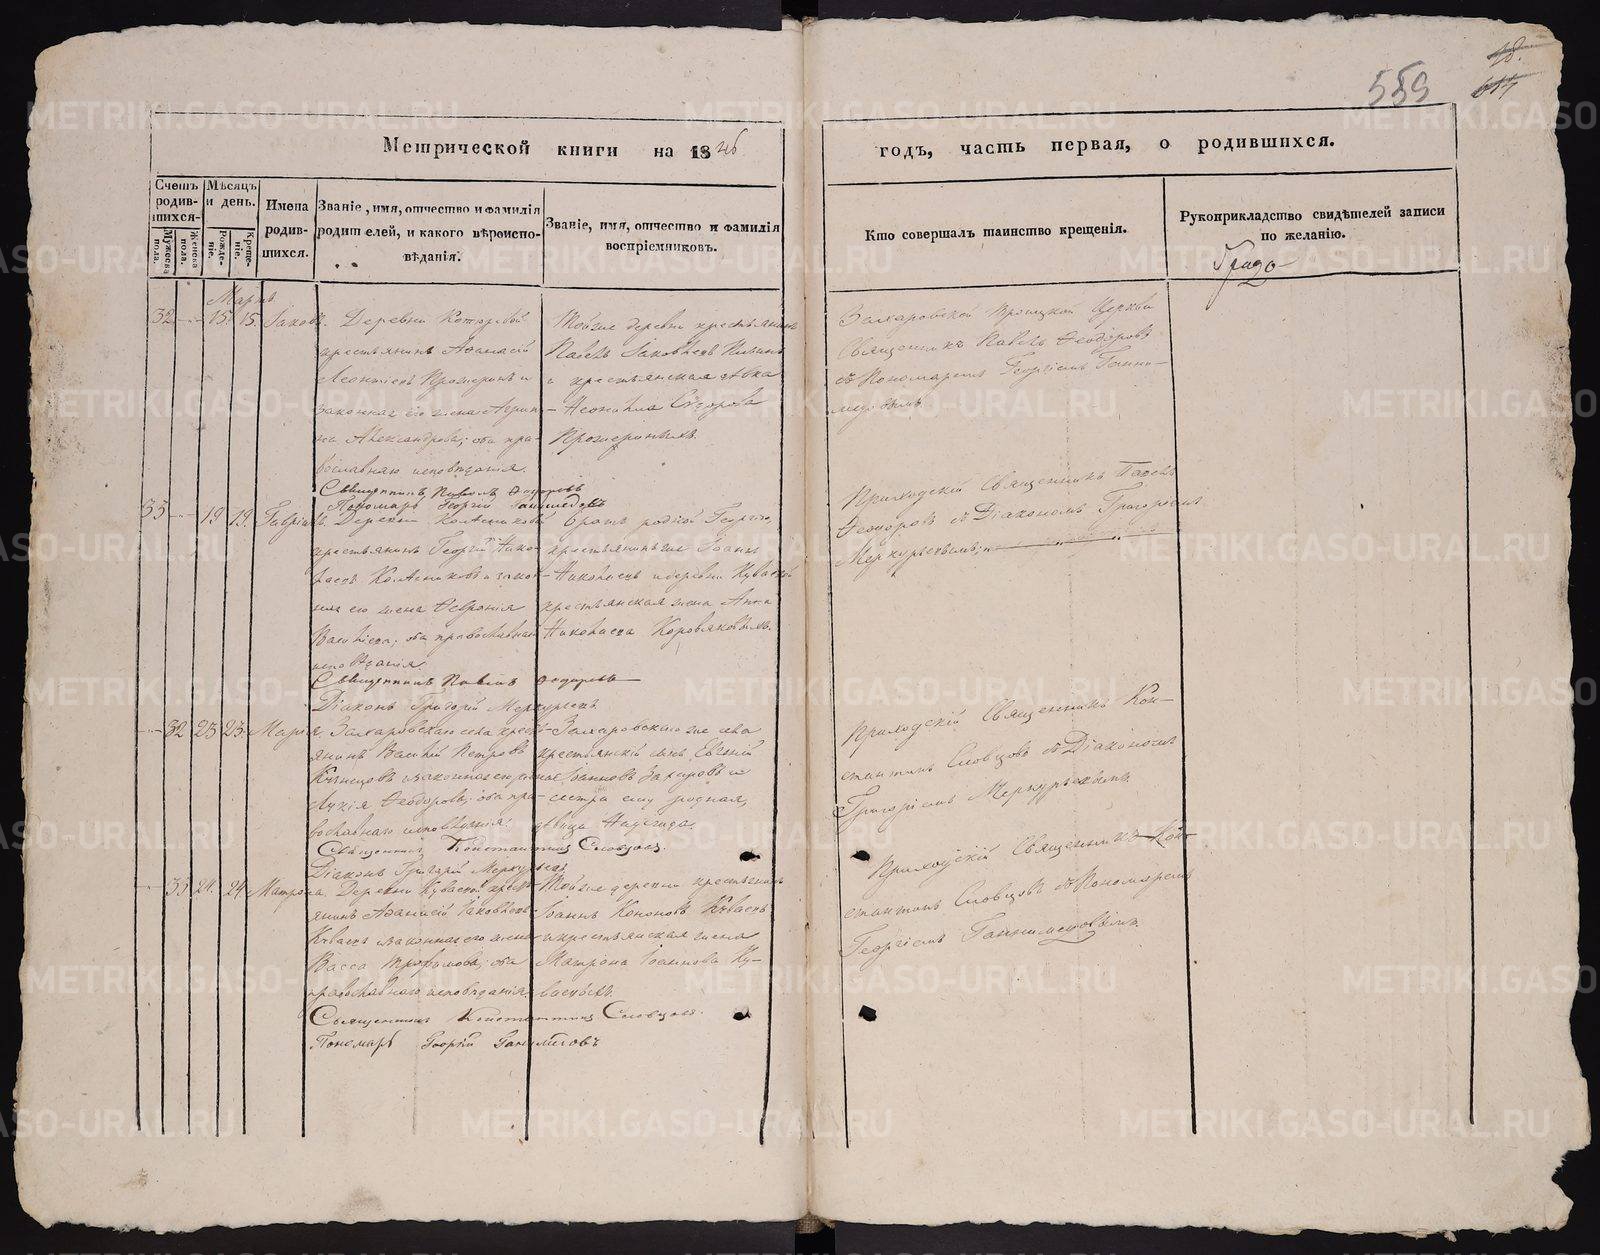 18.
559 617
Метрической книги на 1846
годъ, часть первая, о родившихся.
Счетъ родив- шихся.
Мужеска пола.
Женска пола.
Мѣсяцъ и день.
Рожде- ніе.
Креще- ніе.
Имена родив- шихся.
Званіе, имя, отчество и фамилія
родителей, и какого вѣроиспо-
вѣданія.
Званіе, имя, отчество и фамилія
воспріемниковъ.
Кто совершалъ таинство крещенія.
Рукоприкладство свидѣтелей записи
по желанію.
Мартъ
32 15. 15. Іаковъ. Деревни
крестьянинъ Аѳанасій
Леонтіевъ и
законная его жена
на Александрова; оба пра-
вославнаго исповѣданія.
Священникъ Павелъ Ѳедоровъ
Пономарь Георгій Ганимедовъ
Тойже деревни крестьянинъ
Павелъ Іаковлевъ
и крестьянская дѣвка
Неонилла
Захаровской Троицкой Церкви
Священникъ Павелъ Ѳеодоровъ
съ Пономаремъ Георгіемъ Гани-
медовымъ.
33 19. 19. Гавріилъ. Деревни Колясниковой
крестьянинъ Георгій Нико-
лаевъ Колясниковъ и закон-
ная его жена Ѳевронія
оба православнаго
исповѣданія.
Священникъ Павелъ Ѳедоровъ
Діаконъ Григорій Меркурьевъ
братъ родной Георгію,
крестьянинъ же Іоаннъ
Николаевъ и деревни Куваевой
крестьянская жена Анна
Николаева Коровякова.
Приходскій Священникъ Павелъ
Ѳеодоровъ съ Діакономъ Григоріемъ
Меркурьевымъ.
32 23 23 Марія Захаровскаго села кресть-
янинъ Василій Петровъ
Кузнецовъ и законная его жена
Лукія Ѳеодорова; оба пра-
вославнаго исповѣданія.
Священникъ Константинъ Словцовъ.
Діаконъ Григорій Меркурьевъ
Захаровскаго же села
крестьянскій сынъ Евгеній
Іоанновъ Захаровъ и
сестра ему родная,
дѣвица Надежда.
Приходскій Священникъ Кон-
стантинъ Словцовъ съ Діакономъ
Григоріемъ Меркурьевымъ
33 24. 24 Матрона. Деревни Куваевой кресть-
янинъ Аѳанасій Іаковлевъ
Куваевъ и законная его жена
Васса Трофимова; оба
православнаго исповѣданія.
Священникъ Константинъ Словцовъ.
Пономарь Георгій Ганимедовъ
Тойже деревни крестьянинъ
Іоаннъ Кононовъ Куваевъ
и крестьянская жена
Матрона Іоаннова Ку-
ваевыхъ.
Приходскій Священникъ Кон-
стантинъ Словцовъ съ Пономаремъ
Георгіемъ Ганимедовымъ.